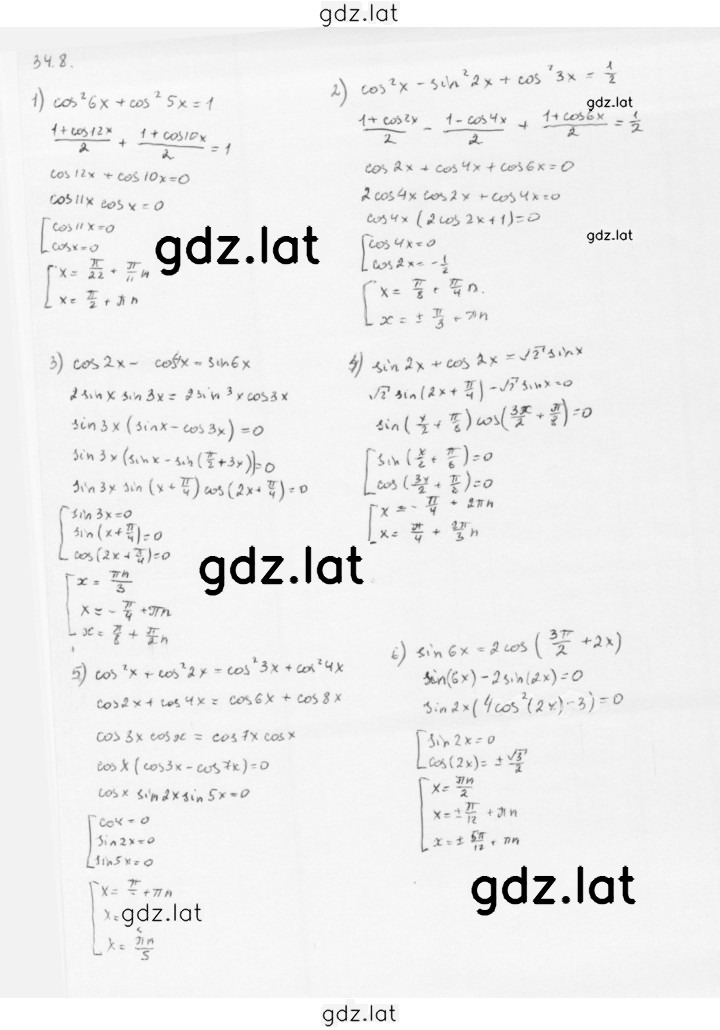 gdz.lat
34.8.
1) cos²6x + cos²5x = 1
(1+cos12x)/2 + (1+cos10x)/2 = 1
cos12x + cos10x = 0
cos11x cosx = 0
[cos11x = 0
cosx = 0
[x = π/22 + π/11 n
x = π/2 + πn
2) cos²x - sin²2x + cos²3x = 1/2
gdz.lat
(1+cos2x)/2 - (1-cos4x)/2 + (1+cos6x)/2 = 1/2
cos2x + cos4x + cos6x = 0
2cos4x cos2x + cos4x = 0
cos4x (2cos2x+1) = 0
gdz.lat
[cos4x = 0
cos2x = -1/2
[x = π/8 + π/4 n.
x = ± π/3 + πn
gdz.lat
3) cos2x - cos4x = sin6x
2sinx sin3x = 2sin3x cos3x
sin3x (sinx - cos3x) = 0
sin3x (sinx - sin(π/2 + 3x)) = 0
sin3x sin(x + π/4) cos(2x + π/4) = 0
[sin3x = 0
sin(x + π/4) = 0
cos(2x + π/4) = 0
[x = πn/3
x = -π/4 + πn
x = π/8 + π/2 n
4) sin2x + cos2x = √2 sinx
√2 sin(2x + π/4) - √2 sinx = 0
sin(x/2 + π/8) cos(3x/2 + π/8) = 0
[sin(x/2 + π/8) = 0
cos(3x/2 + π/8) = 0
[x = -π/4 + 2πn
x = π/4 + 2π/3 n
gdz.lat
5) cos²x + cos²2x = cos²3x + cos²4x
cos2x + cos4x = cos6x + cos8x
cos3x cosx = cos7x cosx
cosx (cos3x - cos7x) = 0
cosx sin2x sin5x = 0
[cosx = 0
sin2x = 0
sin5x = 0
[x = π/ + πn
x =
gdz.lat
x = πn/5
6) sin6x = 2cos(3π/2 + 2x)
sin(6x) - 2sin(2x) = 0
sin2x (4cos²(2x) - 3) = 0
[sin2x = 0
cos(2x) = ± √3/2
[x = πn/2
x = ± π/12 + πn
x = ± 5π/12 + πn
gdz.lat
gdz.lat